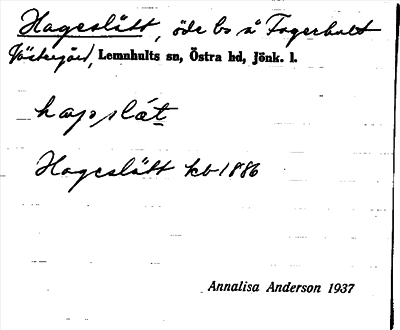 Hageslätt, öde bs å Fagerhult
Västergård, Lemnhults sn, Östra hd, Jönk. l.
hapslæt
Hageslätt kb 1886
Annalisa Anderson 1937